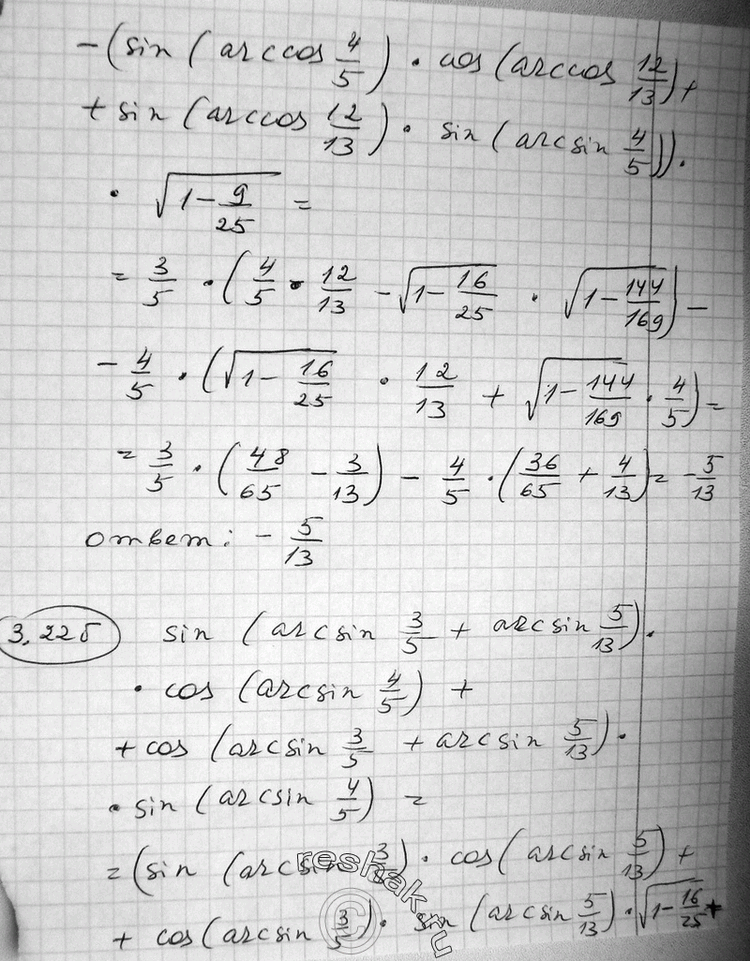 -(sin (arccos 4/5) · cos (arccos 12/13) +
+ sin (arccos 12/13) · sin (arcsin 4/5)) ·
· √(1 - 9/25) =
= 3/5 · (4/5 · 12/13 - √(1 - 16/25) · √(1 - 144/169)) -
- 4/5 · (√(1 - 16/25) · 12/13 + √(1 - 144/169) · 4/5) =
= 3/5 · (48/65 - 3/13) - 4/5 · (36/65 + 4/13) = - 5/13
ответ: - 5/13
3.22б sin (arcsin 3/5 + arcsin 5/13) ·
· cos (arcsin 4/5) +
+ cos (arcsin 3/5 + arcsin 5/13) ·
· sin (arcsin 4/5) =
= (sin (arcsin 3/5) · cos (arcsin 5/13) +
+ cos (arcsin 3/5) · sin (arcsin 5/13) · √(1 - 16/25) +
reshak.ru
©